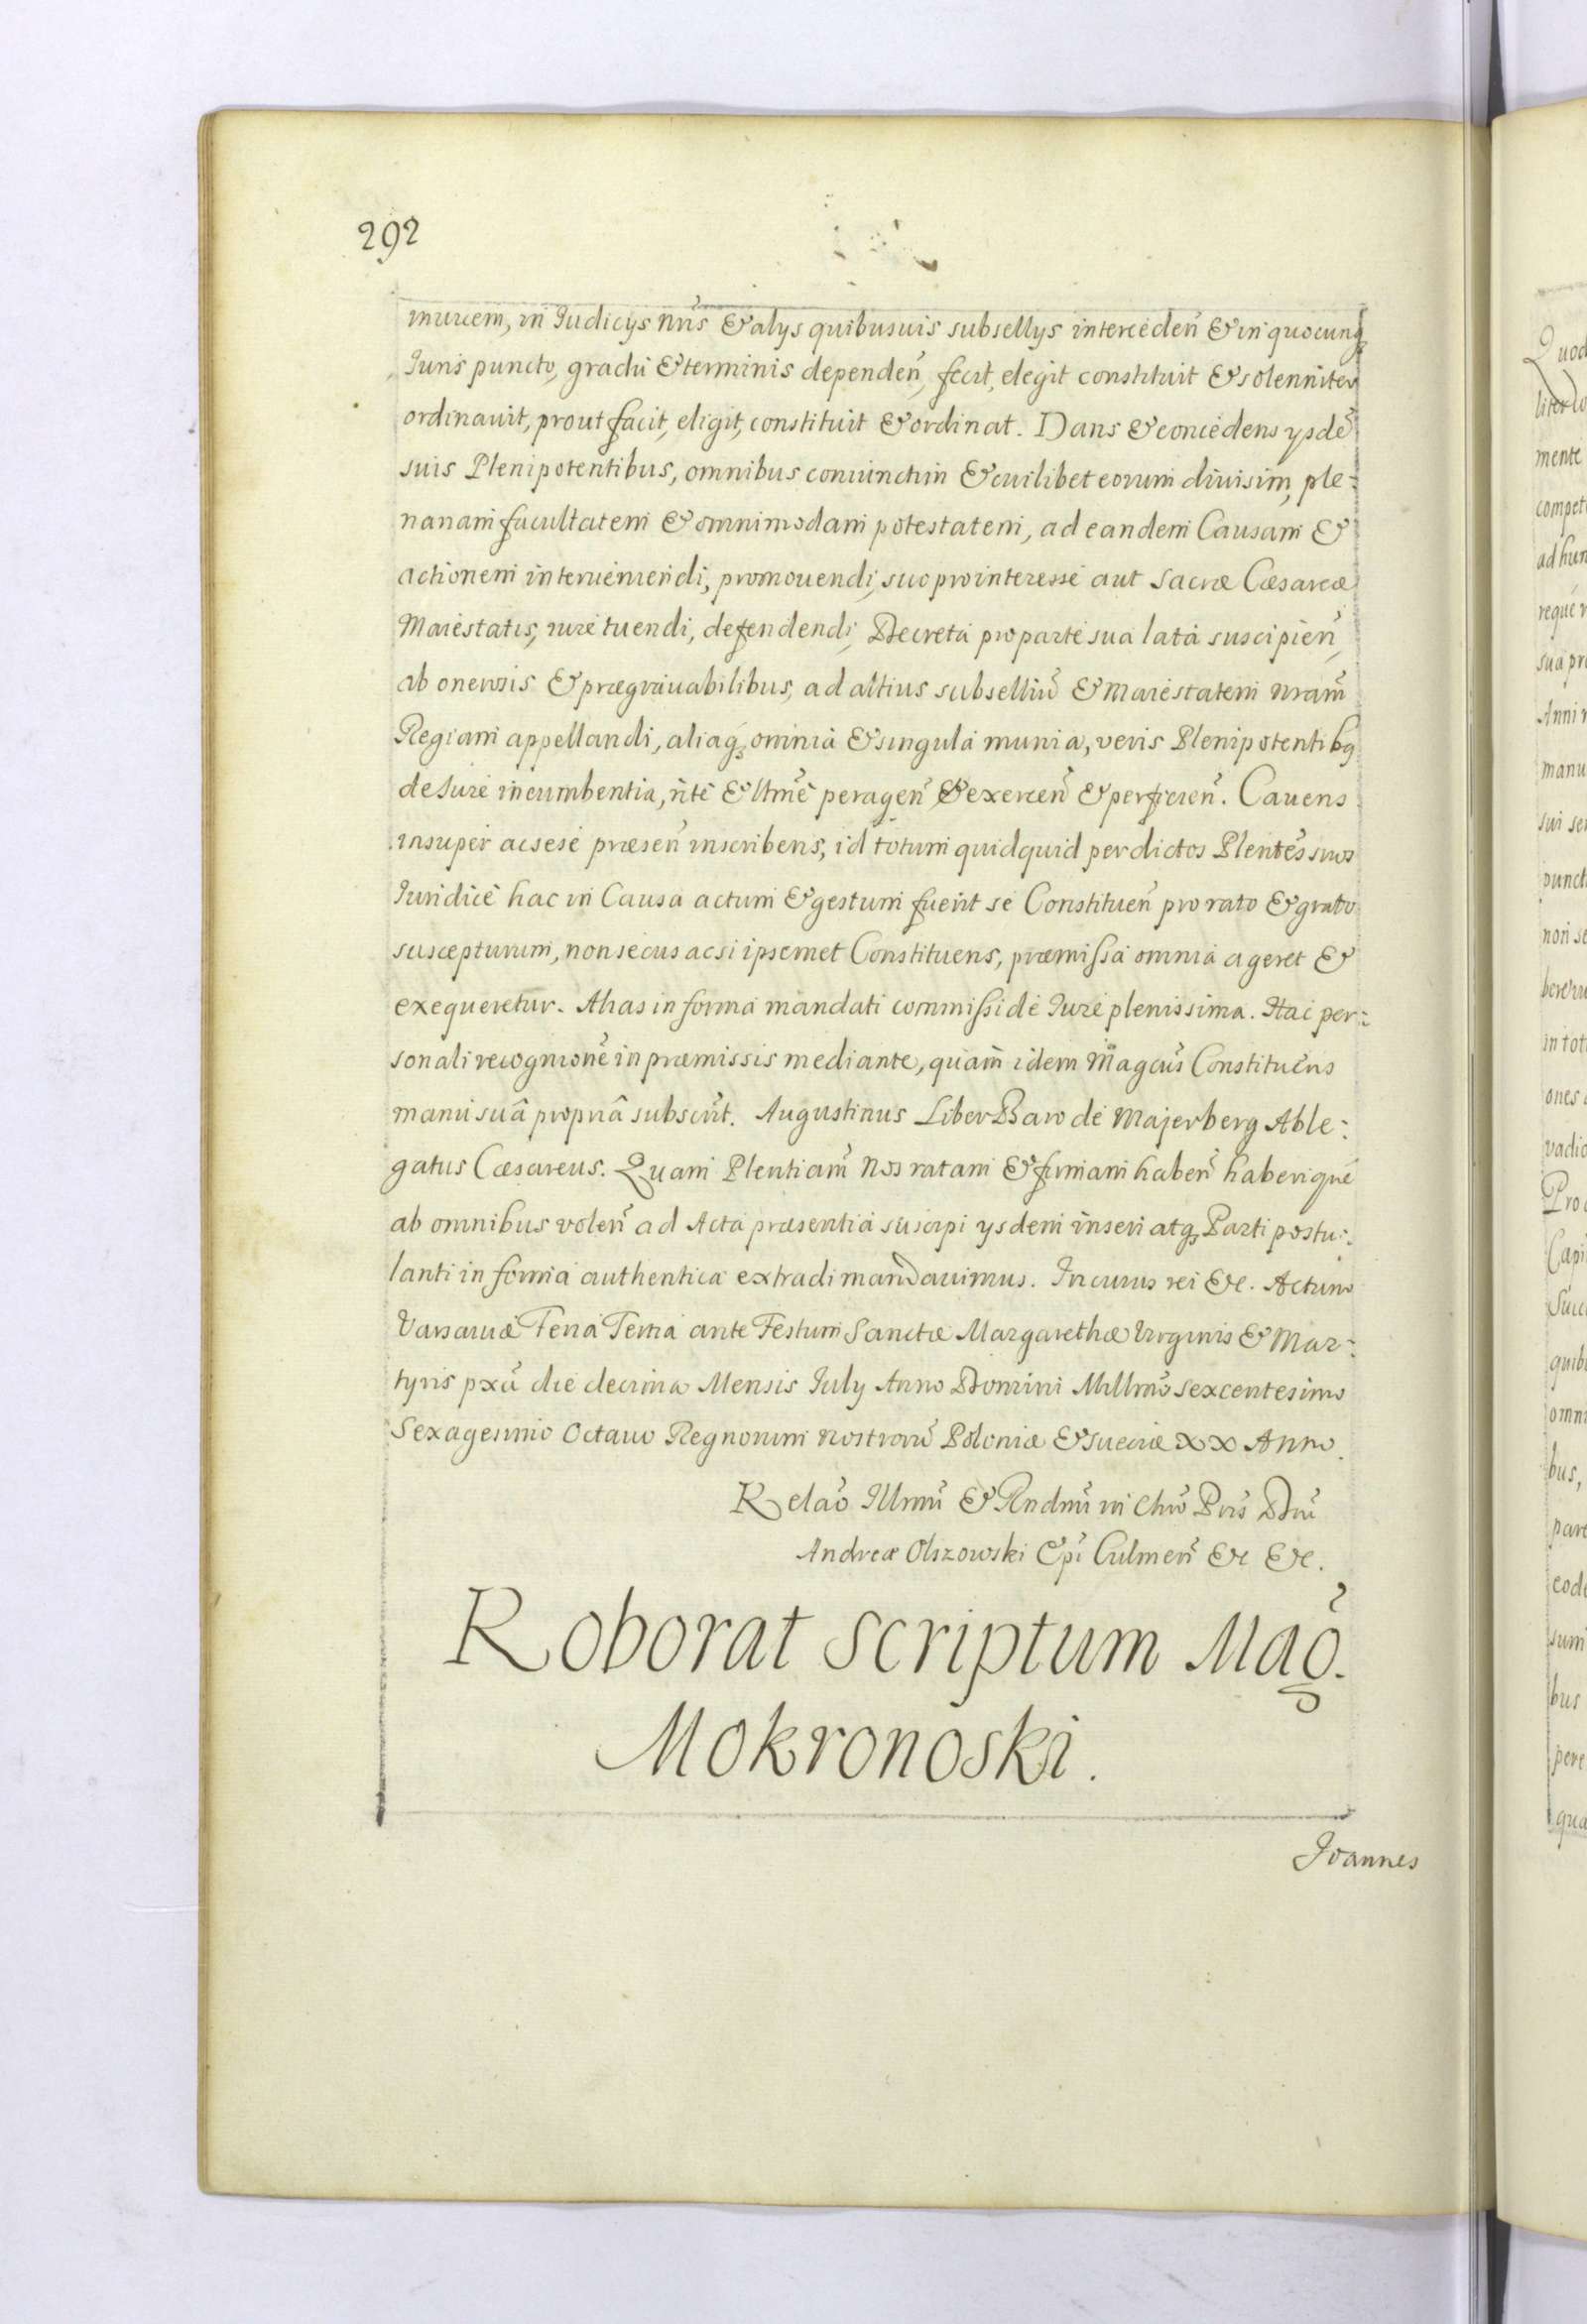 292
inuicem, in Iudicijs nris̃ & alys quibusuis subsellys interceden̄ & in quocunq
Iuris puncto, gradu & terminis dependen̄, fecit, elegit constituit & solenniter
ordinauit, prout facit, eligit, constituit & ordinat. Dans & concedens ysdē
suis Plenipotentibus, omnibus coniunctim & cuilibet eorum diuisim, ple:
nariam facultatem & omnimodam potestatem, ad eandem Causam &
actionem interueniendi, promouendi, suo pro interesse aut Sacræ Cæsareæ
Maiestatis, iure tuendi, defendendi, Decreta pro parte sua lata suscipien̄,
ab onerosis & prægrauabilibus, ad altius subselliū & Maiestatem nram̄
Regiam appellandi, aliaq, omnia & singula munia, veris Plenipotentibq
de Iure incumbentia, rite & ltmē peragen̄ & exercen̄ & perficien̄. Cauens
insuper ac sese præsen̄ inscribens, id totum quidquid per dictos Plentēs suos
Iuridicè hac in Causa actum & gestum fuerit se Constituen̄ pro rato & grato
suscepturum, non secus ac si ipsemet Constituens, præmissa omnia ageret &
exequeretur. Alias in forma mandati commissi de Iure plenissima. Hac per:
sonali recognione in præmissis mediante, quam idem Magcūs Constituens
manu suâ propriâ subscrit. Augustinus Liber Baro de Majerberg Able:
gatus Cæsareus. Quam Plentiam̄ Nos ratam & firmam haben̄ haberique
ab omnibus volen̄ ad Acta præsentia suscipi ysdem inseri atq, Parti postu:
lanti in forma authentica extradi mandauimus. In cuius rei &c. Actum
Varsauiæ Feria Tertia ante Festum Sanctæ Margarethæ Virginis & Mar:
tyris pxā die decima Mensis July Anno Domini Millmō sexcentesimo
Sexagesimo Octauo Regnorum nostrorū Poloniæ & Sueciæ XX Anno.
Relaō Illrmi & Rndmi in Chrō Pris Dni
Andreæ Olszowski Epi Culmen̄ &c &c.
Roborat Scriptum Mag̃.
Mokronoski.
Ioannes